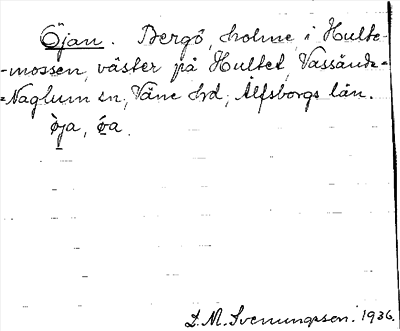 Öjan. Bergö, holme i Hulte-
-mossen, väster på Hultet, Vassända-
-Naglum sn, Väne hd, Älfsborgs län.
òja, óa.
L. M. Svenungsson. 1936.